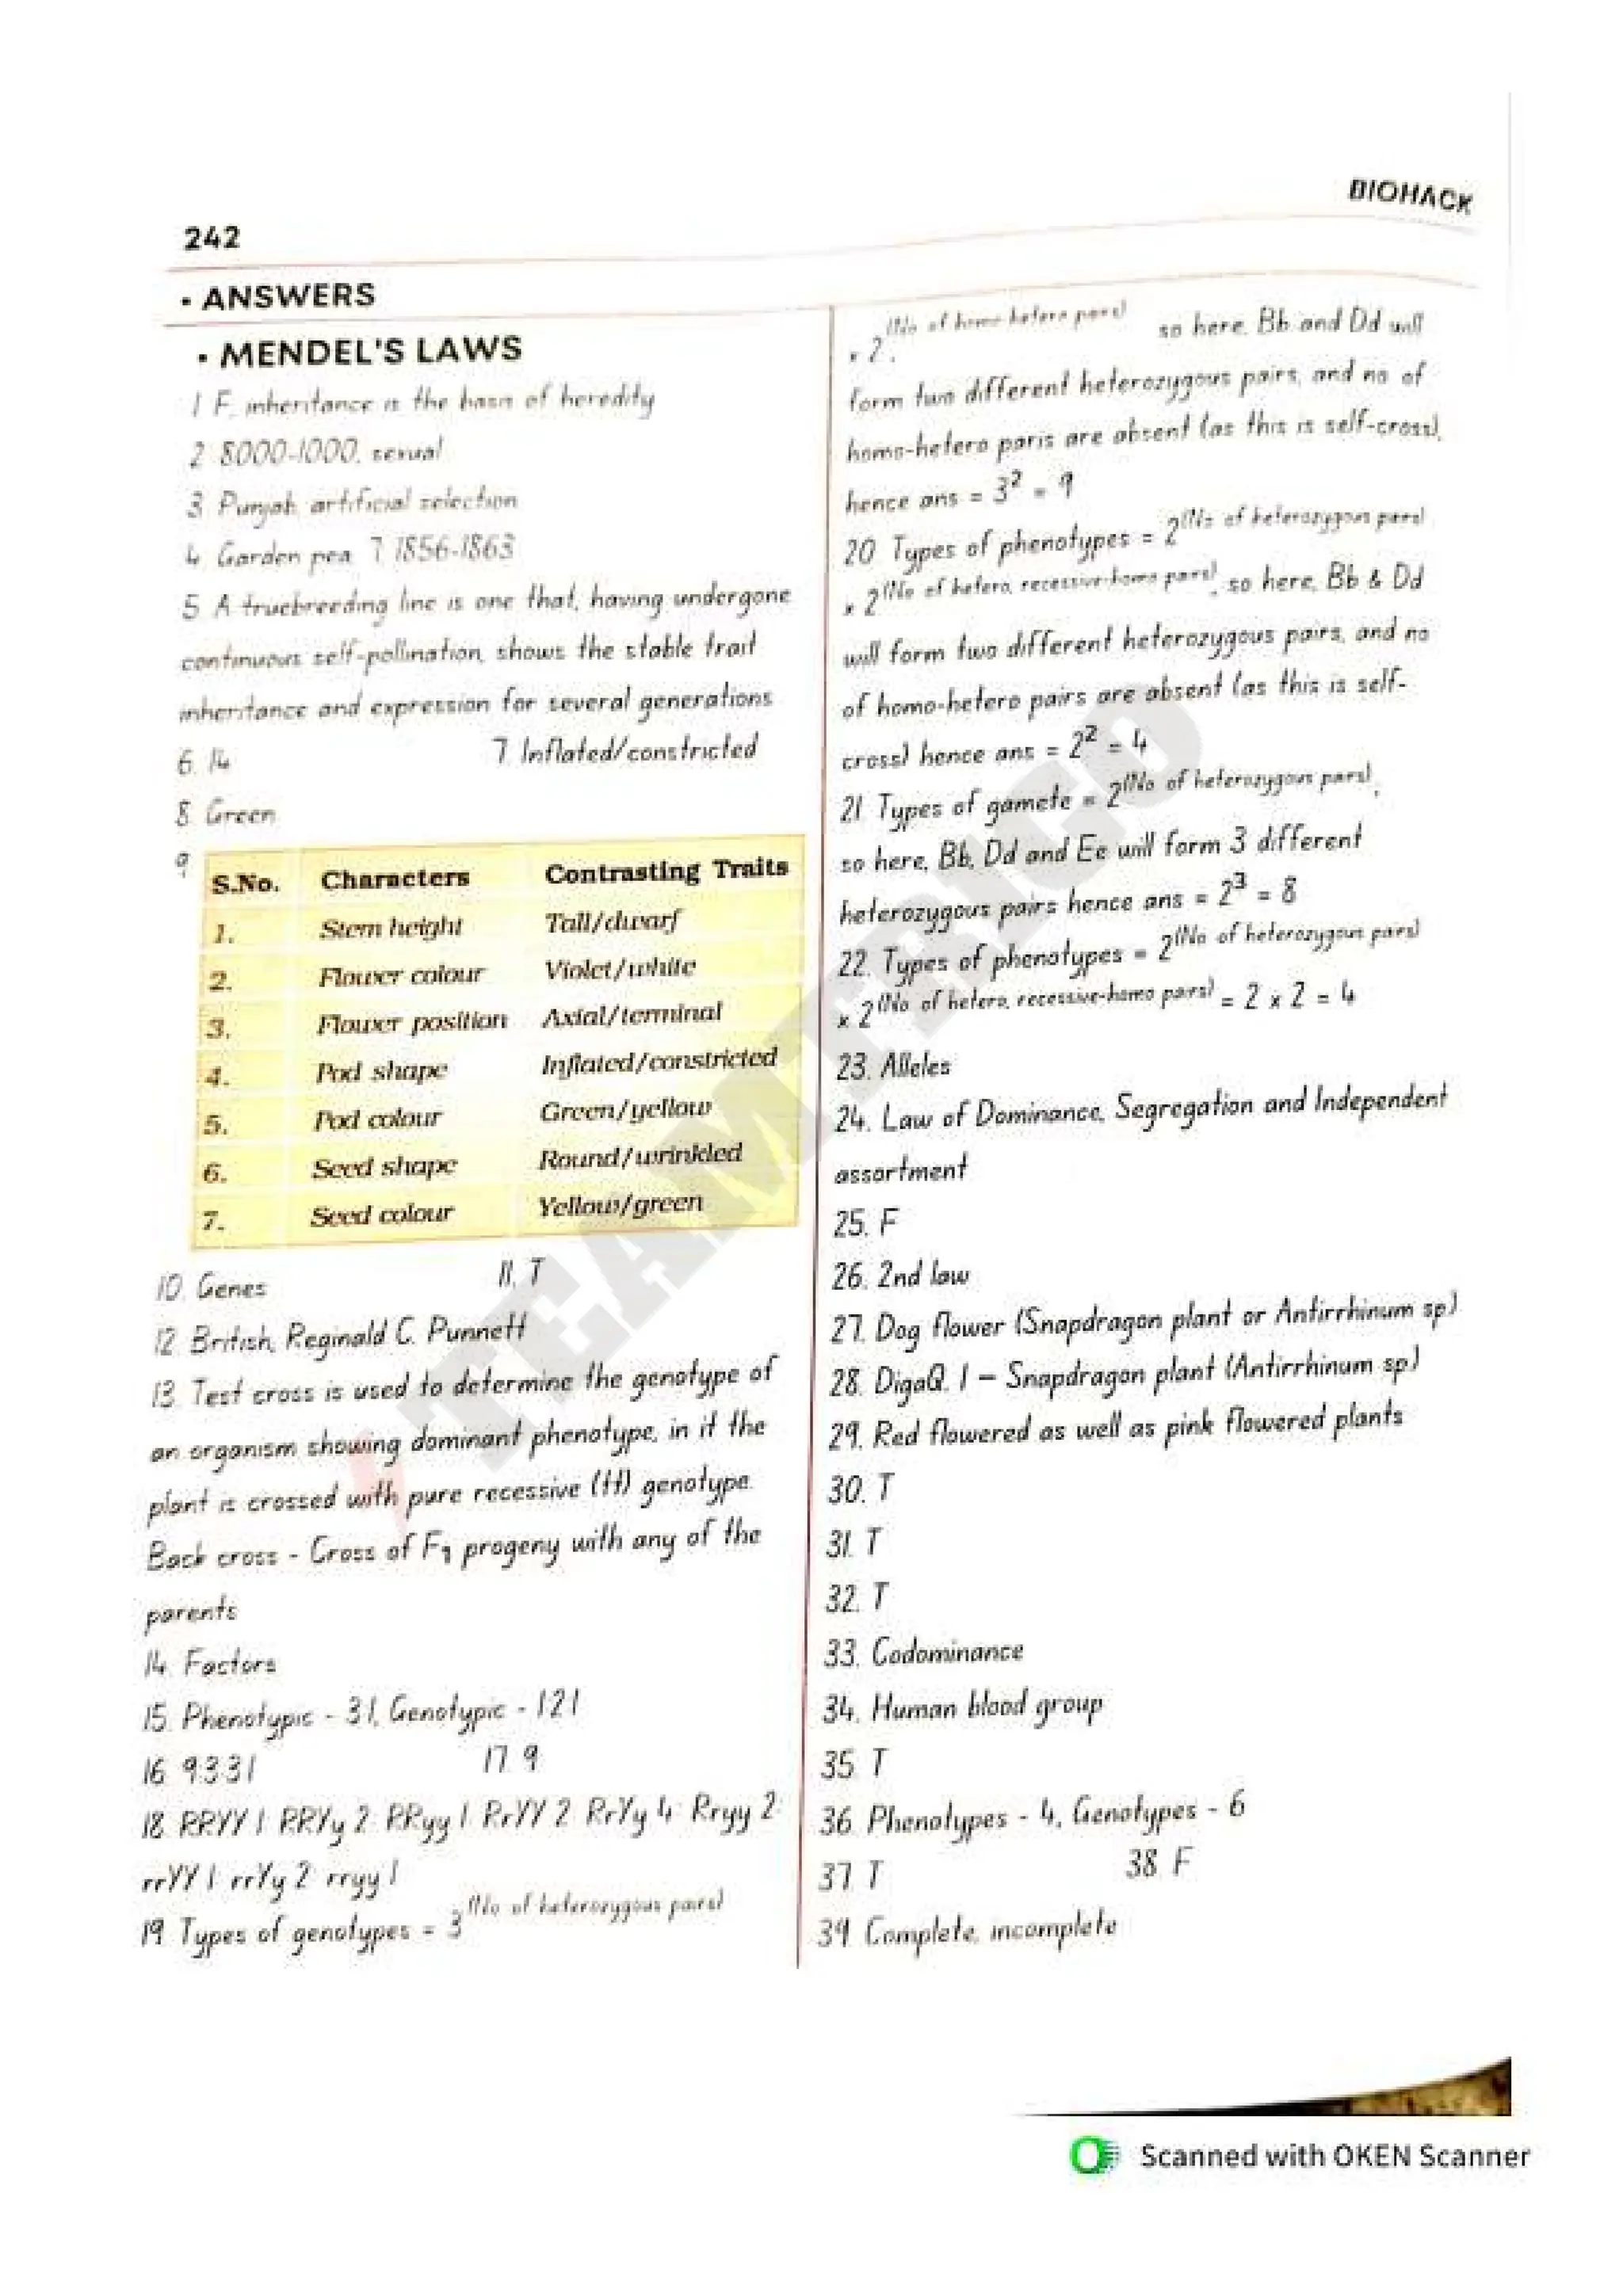 BIOHACK
242
• ANSWERS
• MENDEL'S LAWS
1 F, inheritance is the basis of heredity
2 8000-1000, sexual
3 Punjab, artificial selection
4 Garden pea, 7, 1856-1863
5 A truebreeding line is one that, having undergone
continuous self-pollination, shows the stable trait
inheritance and expression for several generations
6. 14 7. Inflated/constricted
8. Green
9
S.No. Characters Contrasting Traits
1. Stem height Tall/dwarf
2. Flower colour Violet/white
3. Flower position Axial/terminal
4. Pod shape Inflated/constricted
5. Pod colour Green/yellow
6. Seed shape Round/wrinkled
7. Seed colour Yellow/green
10. Genes 11. T
12 British, Reginald C. Punnett
13 Test cross is used to determine the genotype of
an organism showing dominant phenotype, in it the
plant is crossed with pure recessive (tt) genotype.
Back cross - Cross of F1 progeny with any of the
parents
14 Factors
15. Phenotypic - 3:1, Genotypic - 1:2:1
16 9:3:3:1 17 9
18 RRYY 1: RRYy 2: RRyy 1: RrYY 2: RrYy 4: Rryy 2:
rrYY 1: rrYy 2: rryy 1
19 Types of genotypes = 3^(No of heterozygous pairs)
× 2^(No of homo-hetero pairs), so here, Bb and Dd will
form two different heterozygous pairs, and no of
homo-hetero paris are absent (as this is self-cross),
hence ans = 3² = 9
20 Types of phenotypes = 2^(No of heterozygous pairs)
× 2^(No of hetero, recessive-homo pairs), so here, Bb & Dd
will form two different heterozygous pairs, and no
of homo-hetero pairs are absent (as this is self-
cross) hence ans = 2² = 4
21 Types of gamete = 2^(No of heterozygous pairs),
so here, Bb, Dd and Ee will form 3 different
heterozygous pairs hence ans = 2³ = 8
22. Types of phenotypes = 2^(No of heterozygous pairs)
× 2^(No of hetero, recessive-homo pairs) = 2 × 2 = 4
23. Alleles
24. Law of Dominance, Segregation and Independent
assortment
25. F
26. 2nd law
27. Dog flower (Snapdragon plant or Antirrhinum sp.)
28. DigaQ. 1 – Snapdragon plant (Antirrhinum sp.)
29. Red flowered as well as pink flowered plants
30. T
31. T
32. T
33. Codominance
34. Human blood group
35 T
36. Phenotypes - 4, Genotypes - 6
37 T 38 F
39 Complete, incomplete
TEAMTRIGO
Scanned with OKEN Scanner